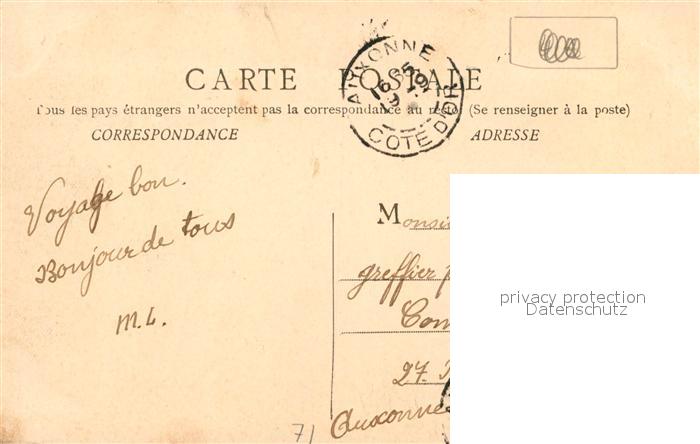 CARTE POSTALE
Tous les pays étrangers n'acceptent pas la correspondance au recto. (Se renseigner à la poste)
CORRESPONDANCE
ADRESSE
AUXONNE
COTE D'OR
Voyage bon.
Bonjour de tous
M. L.
Monsie
greffier
Con
27.
Auxonne
71
privacy protection
Datenschutz